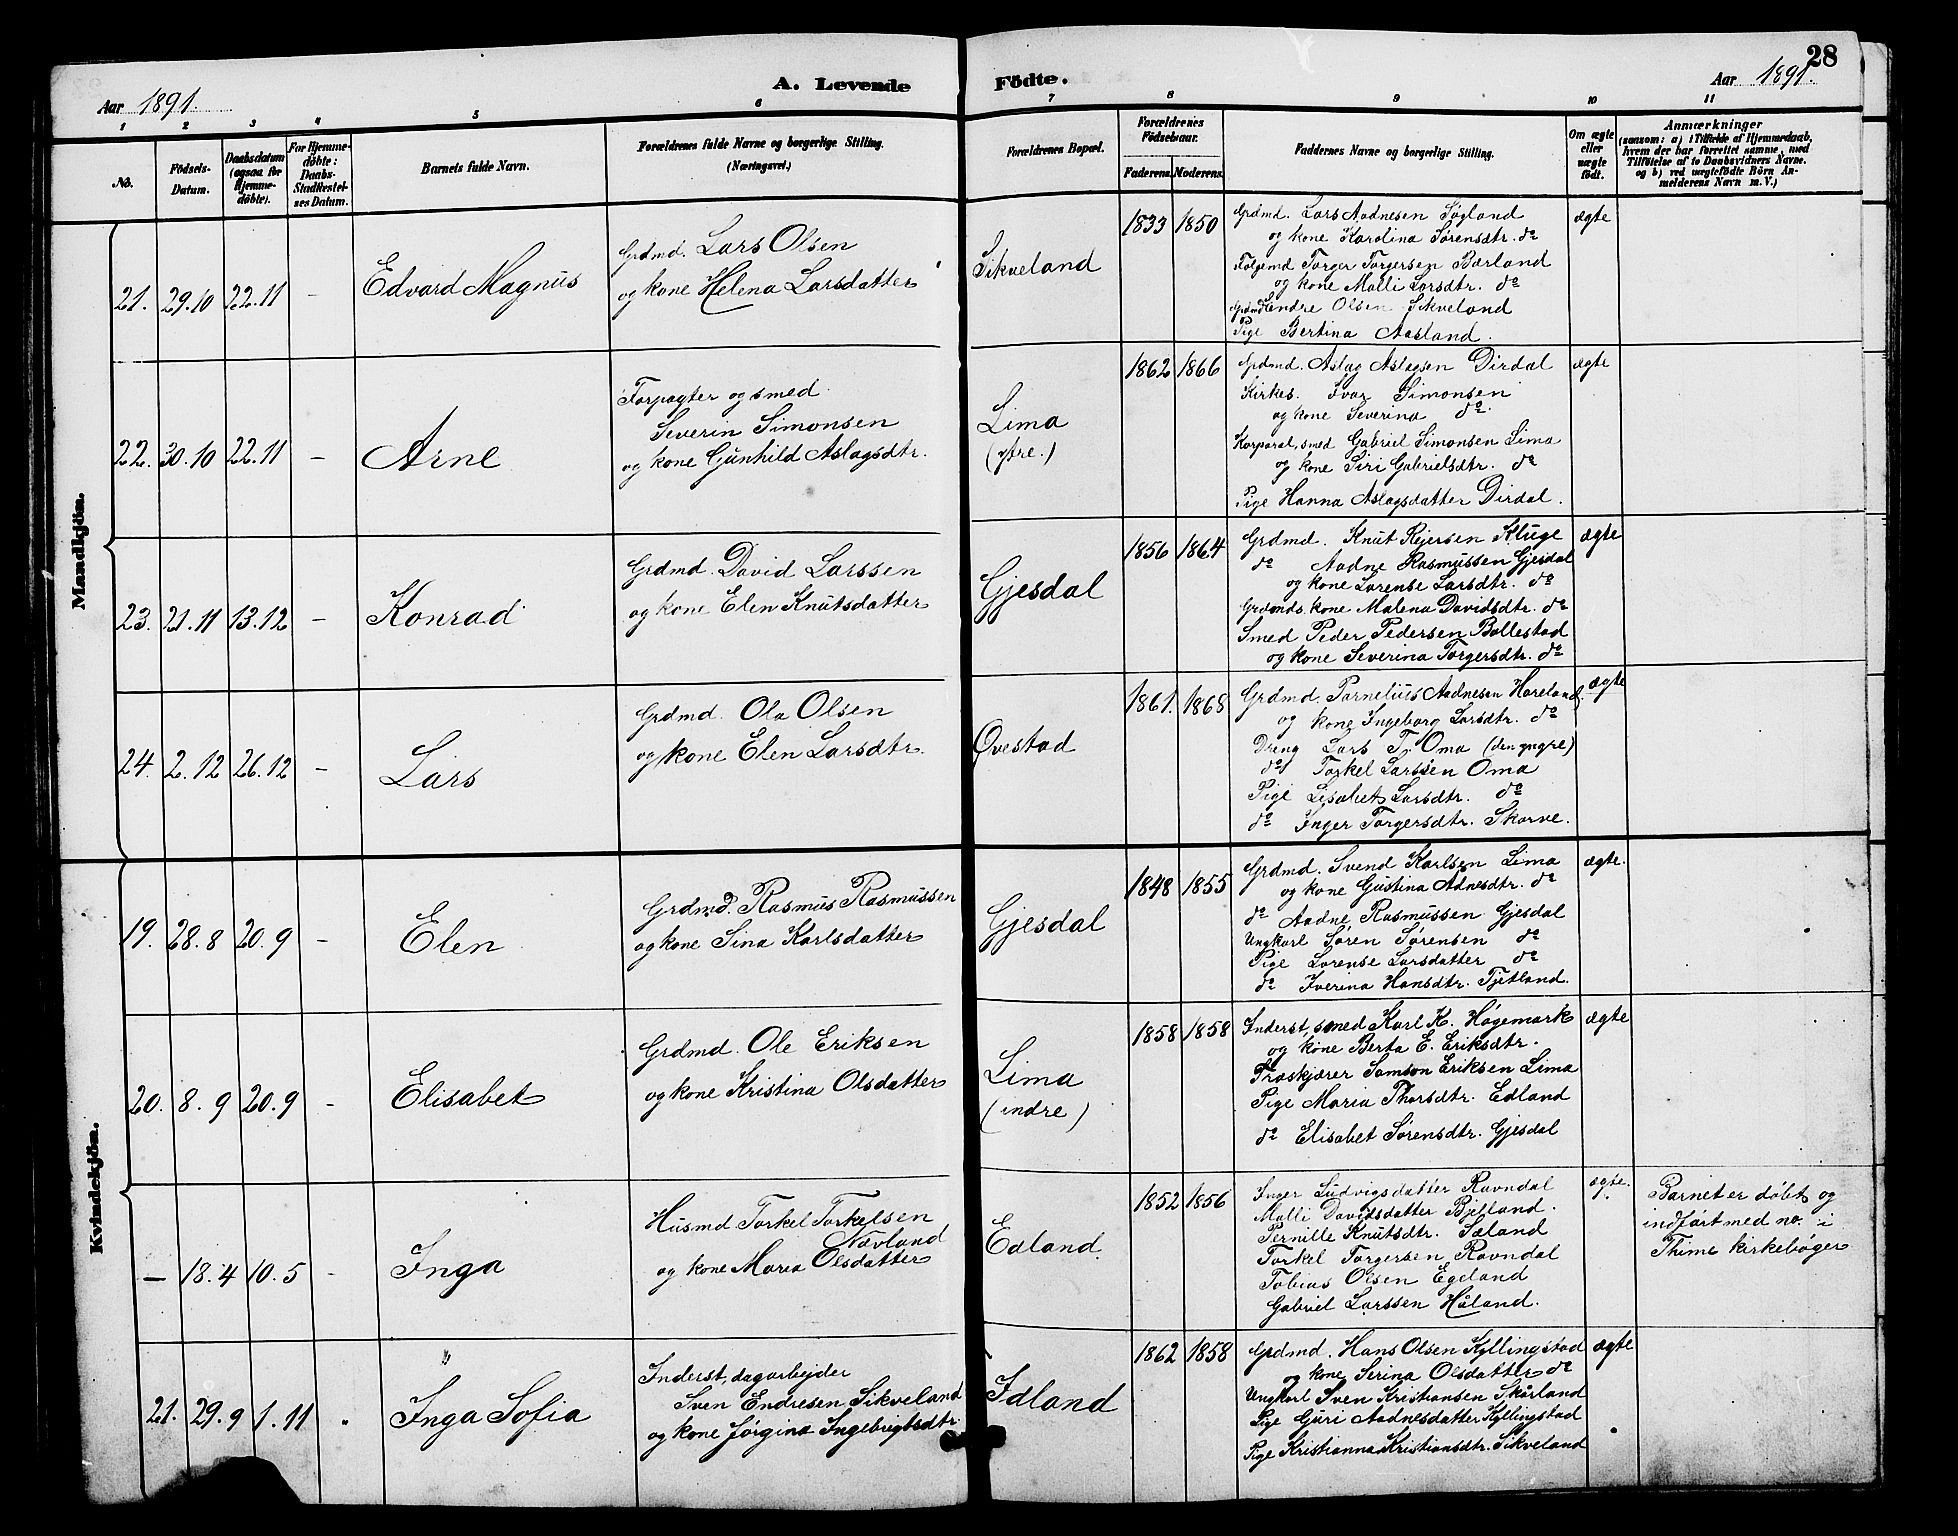 28
A. Levende Födte.
Aar 1891.
Aar 1891.
1 2 3 4 5 6 7 8 9 10 11
No.
Födsels-Datum.
Daabsdatum (ogsaa for Hjemmedöbte).
For Hjemmedöbte: Daabs-Stadfestelses Datum.
Barnets fulde Navn.
Forældrenes fulde Navne og borgerlige Stilling.
(Næringsvei.)
Forældrenes Bopæl.
Forældrenes Födselsaar.
Faderens. Moderens.
Faddernes Navne og borgerlige Stilling.
Om ægte eller uægte födt.
Anmærkninger
(saasom: a) i Tilfælde af Hjemmedaab,
hvem der har forrettet samme, med
Tilföielse af to Daabsvidners Navne.
og b) ved uægtefödte Börn Anmelderens Navn m. V.)
Mandkjön.
21. 29.10 22.11 –
Edvard Magnus
Grdmd. Lars Olsen
og kone Helena Larsdatter
Sikveland
1833 1850
Grdmd. Lars Aadnesen Søyland
og kone Karolina Sørensdtr. do
Følgemd Torger Torgersen Bærland
og kone Malli Larsdtr. do
Grdmd Endre Olsen Sikveland
Pige Bertina Aasland.
ægte
22. 30.10 22.11 –
Arne
Forpagter og smed
Severin Simonsen
og kone Gunhild Aslagsdtr.
Lima
(ytre.)
1862 1866
Grdmd. Aslag Aslagsen Dirdal
Kirkes. Ivar Simonsen
og kone Severina do.
Korporal, smed Gabriel Simonsen Lima
og kone Siri Gabrielsdtr. do
Pige Hanna Aslagsdatter Dirdal.
ægte
23. 21.11 13.12 –
Konrad
Grdmd. David Larssen
og kone Elen Knutsdatter
Gjesdal
1856 1864
Grdmd. Knut Reiersen Kluge
do Aadne Rasmussen Gjesdal
og kone Lorense Larsdtr. do
Grdmds. kone Malena Davidsdtr. do
Smed Peder Pedersen Bollestad
og kone Severina Torgersdtr. do
ægte
24. 2.12 26.12 –
Lars
Grdmd. Ola Olsen
og kone Elen Larsdtr.
Øvestad
1861. 1868
Grdmd. Parnelius Aadnesen Haveland
og kone Ingeborg Larsdtr. do
Dreng Lars T. Oma (den yngre)
do Torkel Larssen Oma
Pige Lisabet Larsdtr. do
do Inger Torgersdtr. Skorve.
ægte
Kvindekjön.
19. 28.8 20.9 –
Elen
Grdmd. Rasmus Rasmussen
og kone Sina Karlsdatter
Gjesdal
1848 1855
Grdmd. Svend Karlsen Lima
og kone Gustina Adnesdtr. do
do Aadne Rasmussen Gjesdal
Ungkarl Søren Sørensen do
Pige Lorense Larsdatter do
do Iverina Hansdtr. Tjetland.
ægte.
20. 8.9 20.9 –
Elisabet
Grdmd. Ole Eriksen
og kone Kristina Olsdatter
Lima
(indre)
1858 1858
Inderst, smed Karl K. Høgemark
og kone Berta E. Eriksdtr.
Træskjærer Samson Eriksen Lima
Pige Maria Thorsdtr. Edland
do Elisabet Sørensdtr. Gjesdal
ægte
– 18.4 10.5 –
Inga
Husmd Torkel Torkelsen
Nævland
og kone Maria Olsdatter
Edland.
1852 1856
Inger Ludvigsdatter Ravndal
Malli Davidsdatter Bjelland.
Pernille Knutsdtr. Sæland
Torkel Torgersen Ravndal
Tobias Olsen Egeland
Gabriel Larssen Håland.
ægte.
Barnet er døbt og
indført med no. i
Thime kirkebøger
21. 29.9 1.11 "
Inga Sofia
Inderst, dagarbejder
Sven Endresen Sikveland
og kone Jørgina Ingebrigtsdtr.
Idland
1862 1858
Grdmd. Hans Olsen Kyllingstad
og kone Serina Olsdatter do
Ungkarl Sven Kristiansen Skårland
Pige Guri Aadnesdatter Kyllingstad
Pige Kristianna Kristiansdtr. Sikveland
ægte